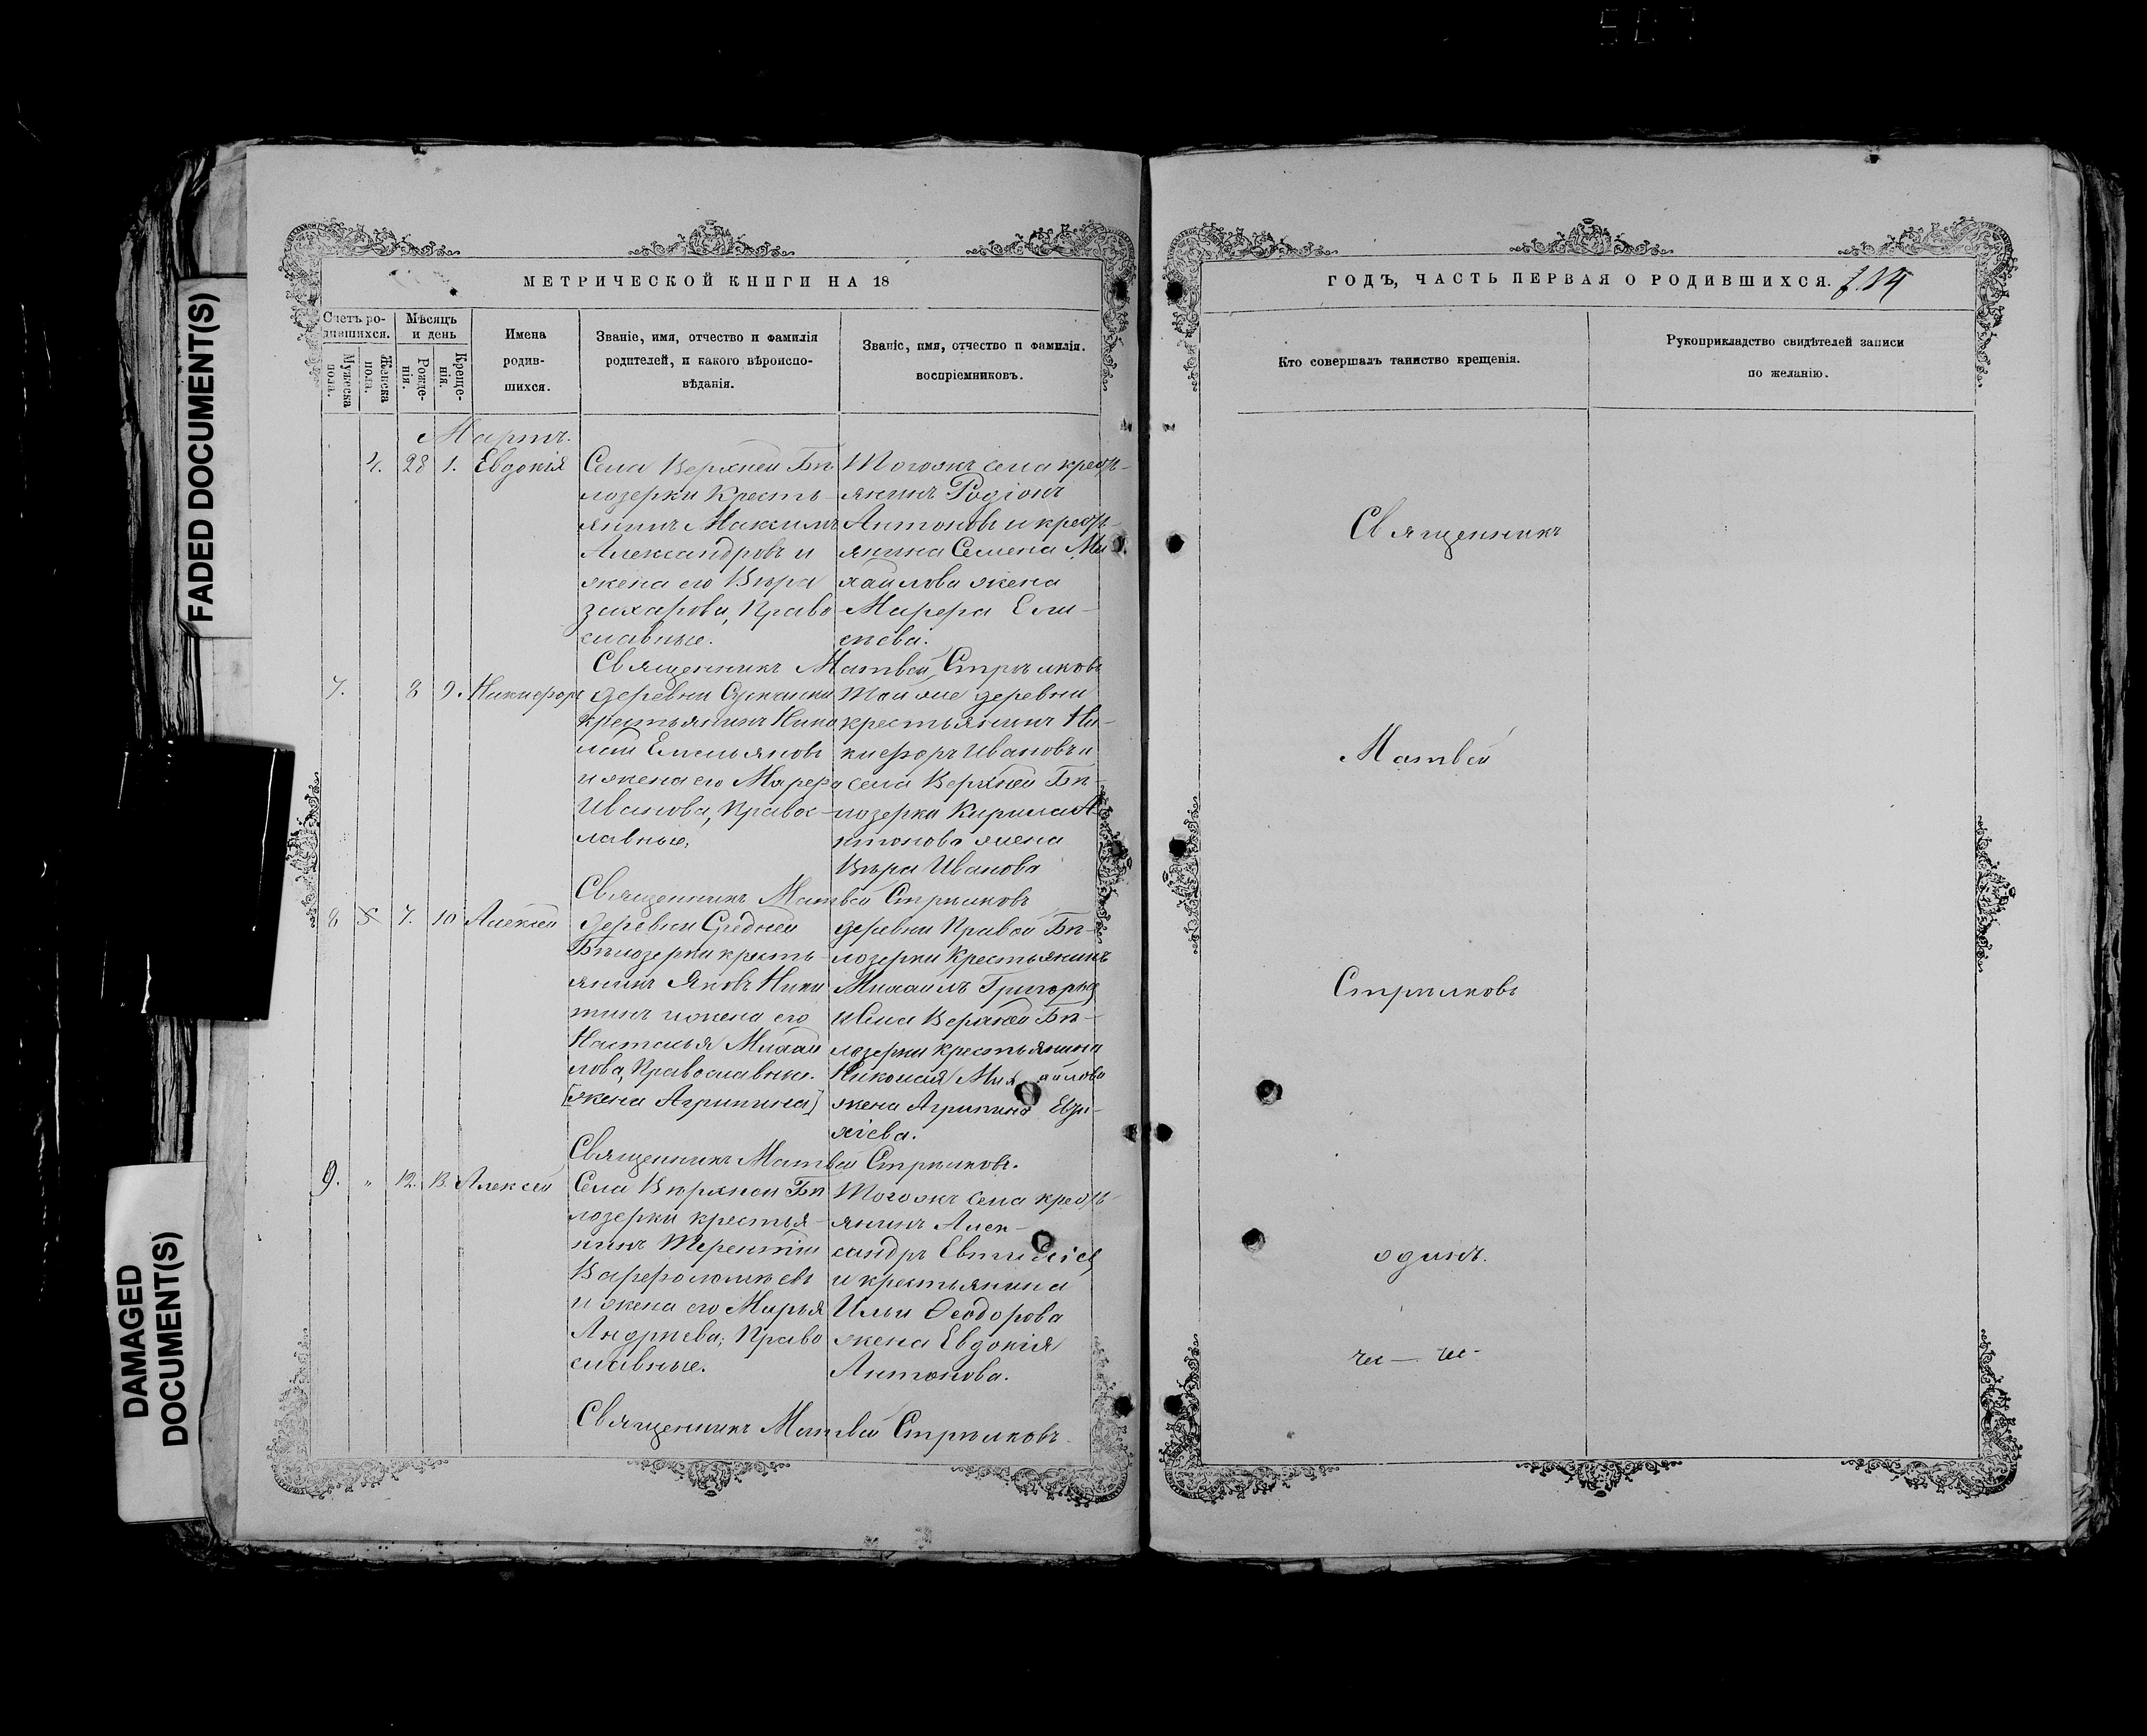 FADED DOCUMENT(S)
DAMAGED
DOCUMENT(S)
МЕТРИЧЕСКОЙ КНИГИ НА 18
Счетъ ро-
дившихся.
Мужеска
пола.
Женска
пола.
Мѣсяцъ
и день
Рожде-
нія.
Креще-
нія.
Имена
родив-
шихся.
Званіе, имя, отчество и фамилія
родителей, и какого вѣроиспо-
вѣданія.
Званіе, имя, отчество и фамилія.
воспріемниковъ.
Мартъ.
4. 28 1. Евдокія
Села Верхней Бѣ
лозерки Кресть-
янинъ Максимъ
Александровъ и
жена его Вѣра
Захарова, Право
славные.
Тогожъ села крест-
янинъ Родіонъ
Антоновъ и крест-
янина Семена Ми
хайлова жена
Марѳа Ели-
сѣева.
Священникъ Матвей Стрѣлковъ
7. 8 9. Никифоръ
деревни
крестьянинъ Нико
лай Емельяновъ
и жена его Марѳа
Иванова, Правос-
лавные,
Той же деревни
крестьянинъ Ни-
кифоръ Ивановъ и
села Верхней Бѣ-
лозерки Кирила А
нтонова жена
Вѣра Иванова
Священникъ Матвей Стрѣлковъ
8 5 7. 10 Алексей
деревни Средней
Бѣлозерки кресть-
янинъ Яковъ Ники
тинъ и жена его
Наталья Михай
лова, Православные.
[жена Агрипина]
деревни Правой Бѣ-
лозерки Крестьянинъ
Михаилъ Григорьев
и Села Верхней Бѣ-
лозерки крестьянина
Николая Михайлова
жена Агрипина
хіева.
Священникъ Матвей Стрѣлковъ.
9. " 12. 13. Алексей
Села Вѣрхней Бѣ
лозерки крестья-
нинъ Терентій
Варѳоломѣевъ
и жена его Марья
Андрѣева; Право
славные.
Тогожъ села крест-
янинъ Алек-
сандръ
и крестьянина
Ильи Ѳеодорова
жена Евдокія
Антонова.
Священникъ Матвей Стрѣлковъ.
ГОДЪ, ЧАСТЬ ПЕРВАЯ О РОДИВШИХСЯ.
Кто совершалъ таинство крещенія.
Рукоприкладство свидѣтелей записи
по желанію.
Священникъ
Матвей
Стрѣлковъ
одинъ.